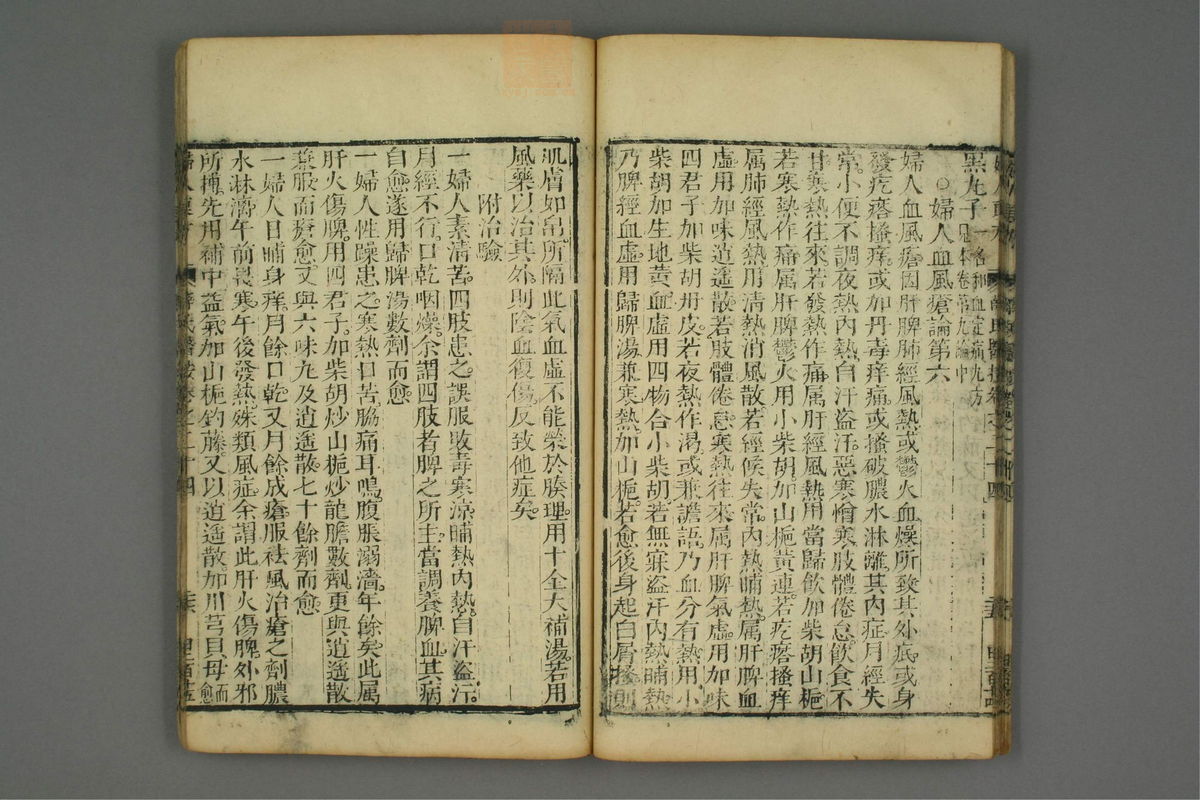 黑丸子一名和血定痛丸方見本卷第九論中
○婦人血風瘡論第六
婦人血風瘡因肝脾肺經風熱或鬱火血燥所致其外症或身
發疙瘩搔痒或如丹毒痒痛或搔破膿水淋漓其內症月經失
常小便不調夜熱內熱自汗盜汗惡寒憎寒肢體倦怠飲食不
甘寒熱往來若發熱作痛属肝經風熱用當歸飲加柴胡山梔
若寒熱作痛属肝脾鬱火用小柴胡加山梔黃連若疙瘩搔痒
属肺經風熱用清熱消風散若經候失常內熱晡熱属肝脾血
虛用加味逍遙散若肢體倦怠寒熱往來属肝脾氣虛用加味
四君子加柴胡丹皮若夜熱作渴或兼譫語乃血分有熱用小
柴胡加生地黃血虛用四物合小柴胡若無寐盜汗內熱晡熱
乃脾經血虛用歸脾湯兼寒熱加山梔若愈後身起白屑搔則
肌膚如帛所隔此氣血虛不能榮於腠理用十全大補湯若用
風藥以治其外則陰血復傷反致他症矣
附治驗
一婦人素清苦四肢患之誤服敗毒寒涼晡熱內熱自汗盜汗
月經不行口乾咽燥余謂四肢者脾之所主當調養脾血其病
自愈遂用歸脾湯數劑而愈
一婦人性躁患之寒熱口苦脇痛耳鳴腹脹溺濇年餘矣此属
肝火傷脾用四君子加柴胡炒山梔炒龍膽數劑更與逍遙散
兼服而瘡愈又與六味丸及逍遙散七十餘劑而愈
一婦人日晡身痒月餘口乾又月餘成瘡服祛風治瘡之劑膿
水淋漓午前畏寒午後發熱殊類風症余謂此肝火傷脾外邪
所搏先用補中益氣加山梔釣藤又以逍遙散加川芎貝母而愈